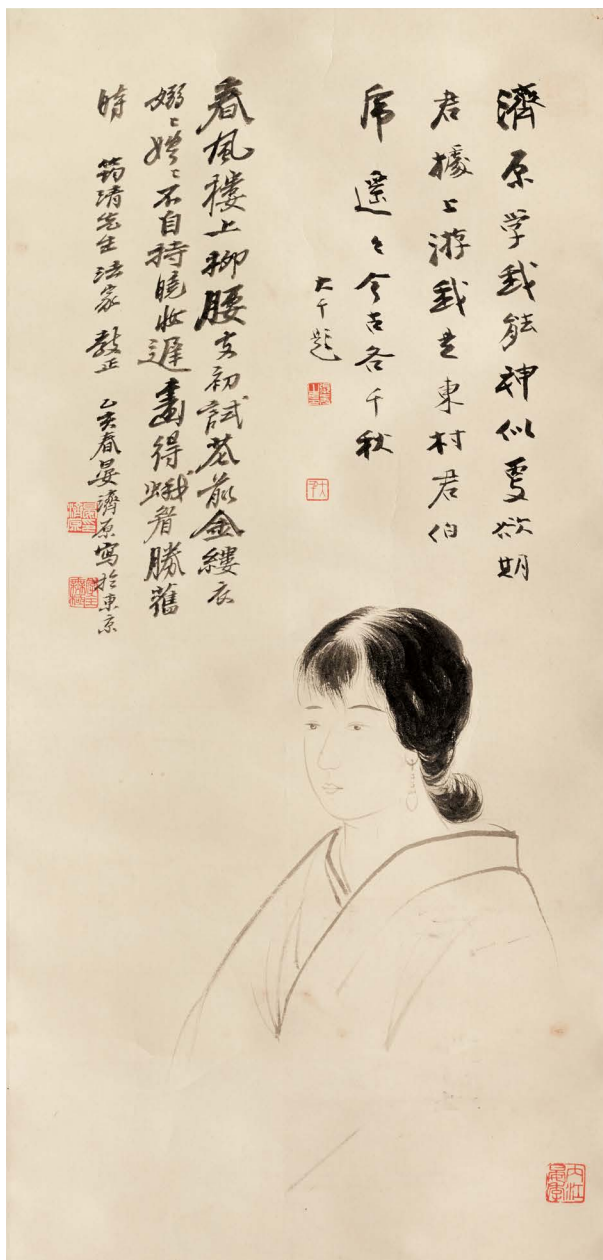 濟原学我能神似更欲期
君據上游我是東村君伯
虎遥々今古各千秋
大千題
春風樓上柳腰支初試花前金縷衣
嫋々娉々不自持曉妝遲畫得蛾眉勝舊
時 筠清先生法家教正 乙亥春晏濟原寫於東京